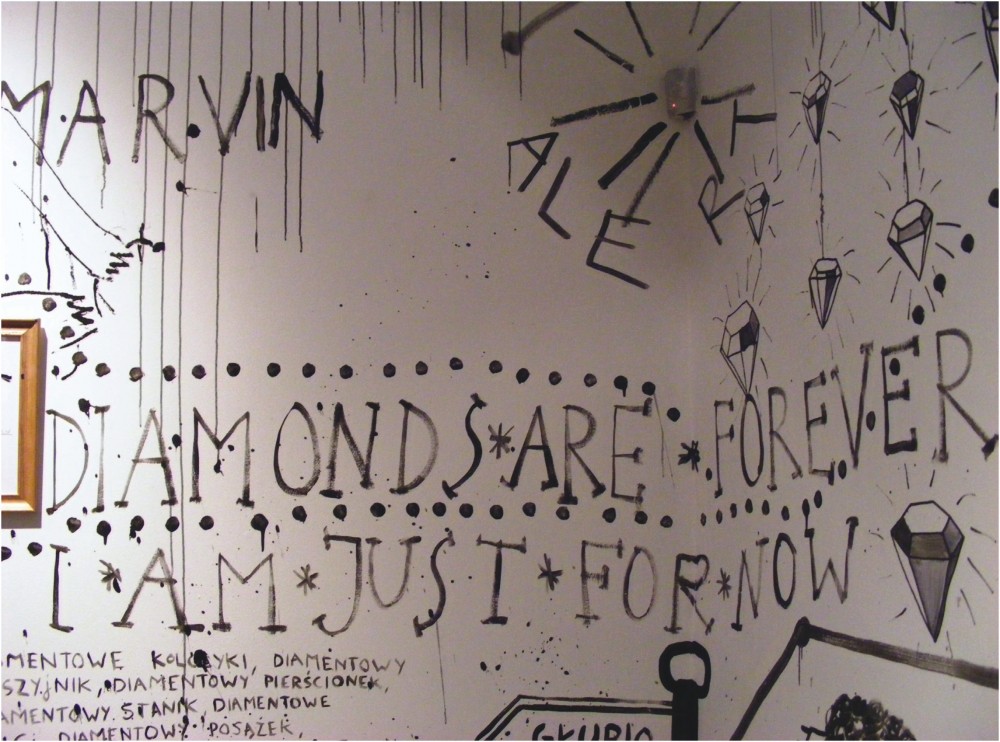 MARVIN
ALERT
DIAMONDS * ARE * FOREVER
I * AM * JUST * FOR * NOW
MENTOWE KOLCZYKI, DIAMENTOWY
SZYJNIK, DIAMENTOWY PIERŚCIONEK,
AMENTOWY STANIK, DIAMENTOWE
DIAMENTOWY POSĄŻEK,
GŁUPIO